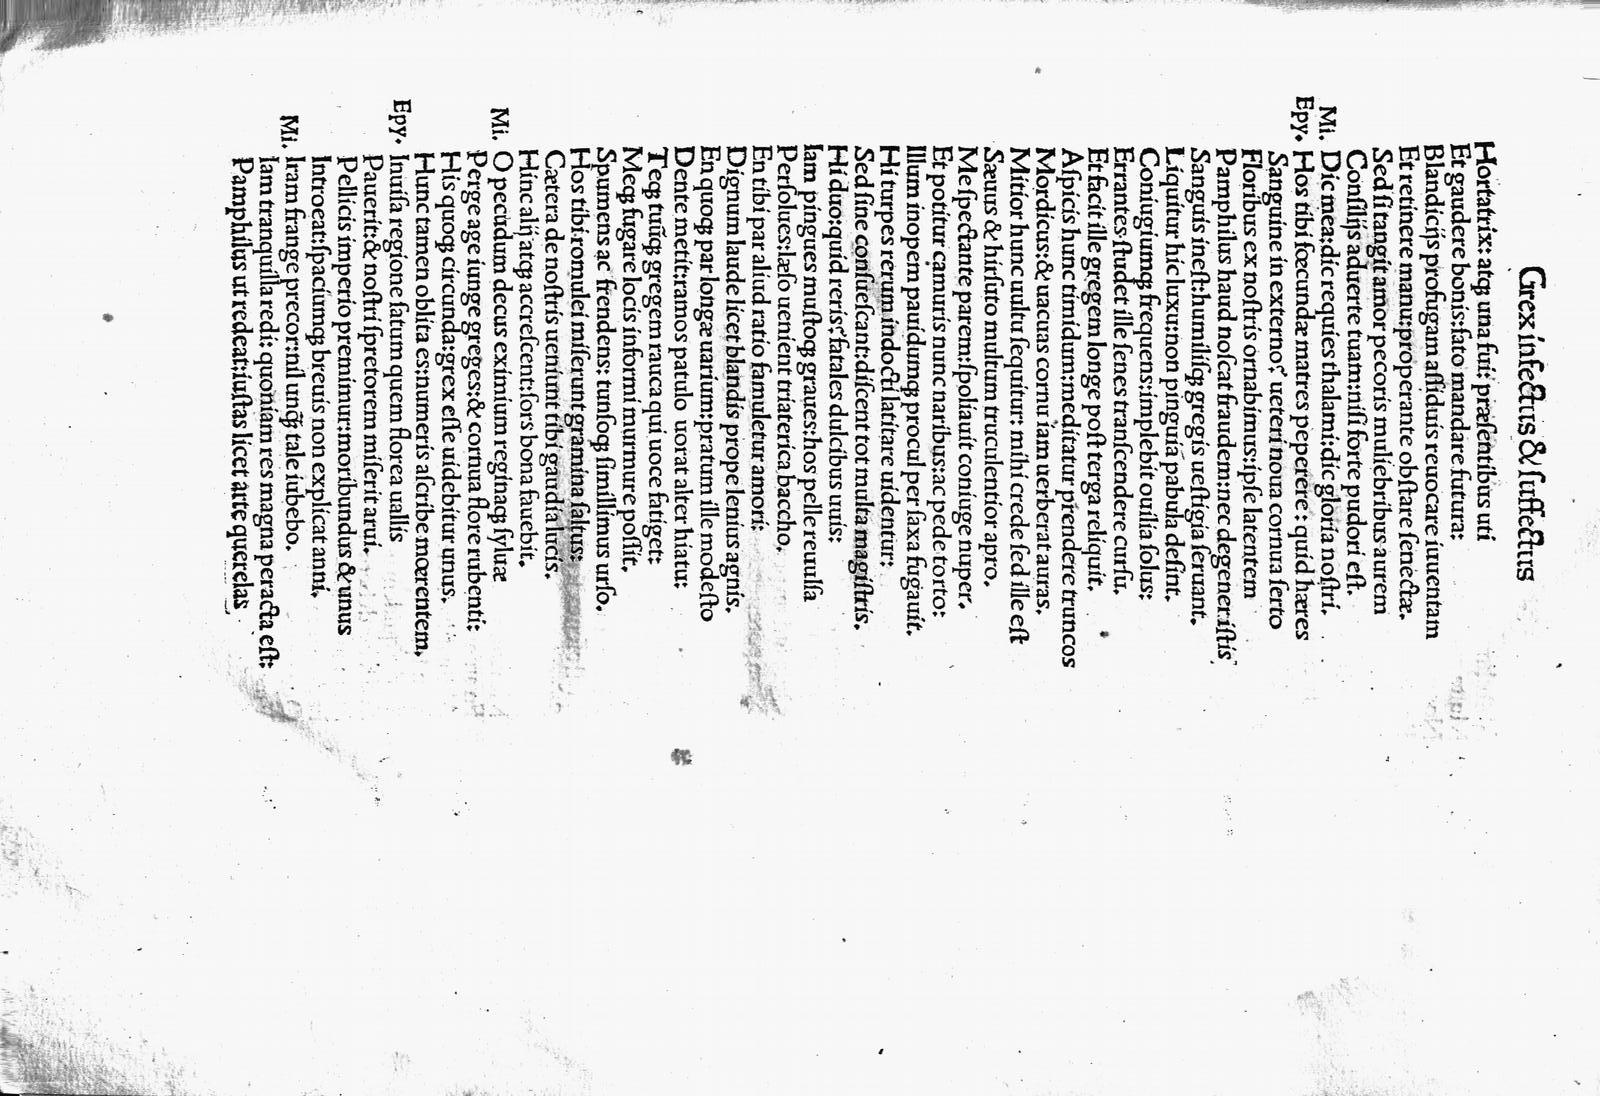 Grex infectus & suffectus
Hortatrix: atq; una fui: præsentibus uti
Et gaudere bonis: fato mandare futura:
Blandicijs profugam assiduis reuocare iuuentam
Et retinere manu: properante obstare senectæ.
Sed si tangit amor pecoris muliebribus aurem
Consilijs aduerte tuam: nisi forte pudori est.
Mi. Dic mea: dic requies thalami: dic gloria nostri.
Epy. Hos tibi fœcundæ matres peperere: quid hæres
Sanguine in externo? ueteri noua cornua serto
Floribus ex nostris ornabimus: ipse latentem
Pamphilus haud noscat fraudem: nec degener: istis
Sanguis inest: humilisq; gregis uestigia seruant.
Liquitur hic luxu: non pinguia pabula desint.
Coniugiumq; frequens: implebit ouilia solus:
Errantes studet ille senes transcendere cursu.
Et facit ille gregem longe post terga reliquit.
Aspicis hunc timidum: meditatur prendere truncos
Mordicus: & uacuas cornu iam uerberat auras.
Mitior hunc uultu sequitur: mihi crede sed ille est
Sæuus & hirsuto multum truculentior apro.
Me spectante parem: spoliauit coniuge nuper.
Et potitur camuris nunc naribus: ac pede torto:
Illum inopem pauidumq; procul per saxa fugauit.
Hi turpes rerum indocti latitare uidentur:
Sed sine consuescant: discent tot multa magistris.
Hi duo: quid reris? fatales dulcibus uuis:
Iam pingues mustoq; graues: hos pelle reuulsa
Persolues: læso uenient triaterica baccho.
En tibi par aliud ratio famuletur amori:
Dignum laude licet blandis prope lenius agnis.
En quoq; par longæ uarium: pratum ille modesto
Dente metit: ramos patulo uorat alter hiatu:
Teq; tuũq; gregem rauca qui uoce fatiget:
Meq; fugare locis informi murmure possit.
Spumens ac frendens: tunsoq; simillimus urso.
Hos tibi romulei miserunt gramina saltus:
Cætera de nostris ueniunt tibi gaudia lucis.
Hinc alij atq; accrescent: sors bona fauebit.
Mi. O pecudum decus eximium reginaq; syluæ
Perge age iunge greges: & cornua flore rubenti:
His quoq; circunda: grex esse uidebitur unus.
Hunc tamen oblita es: numeris ascribe mœrentem.
Epy. Inuisa regione satum quem florea uallis
Pauerit: & nostri spretorem miserit arui.
Pellicis imperio premimur: moribundus & unus
Introeat: spaciumq; breuis non explicat anni.
Mi. Iram frange precor: nil unq̃ tale iubebo.
Iam tranquilla redi: quoniam res magna peracta est:
Pamphilus ut redeat: iustas licet arte querelas